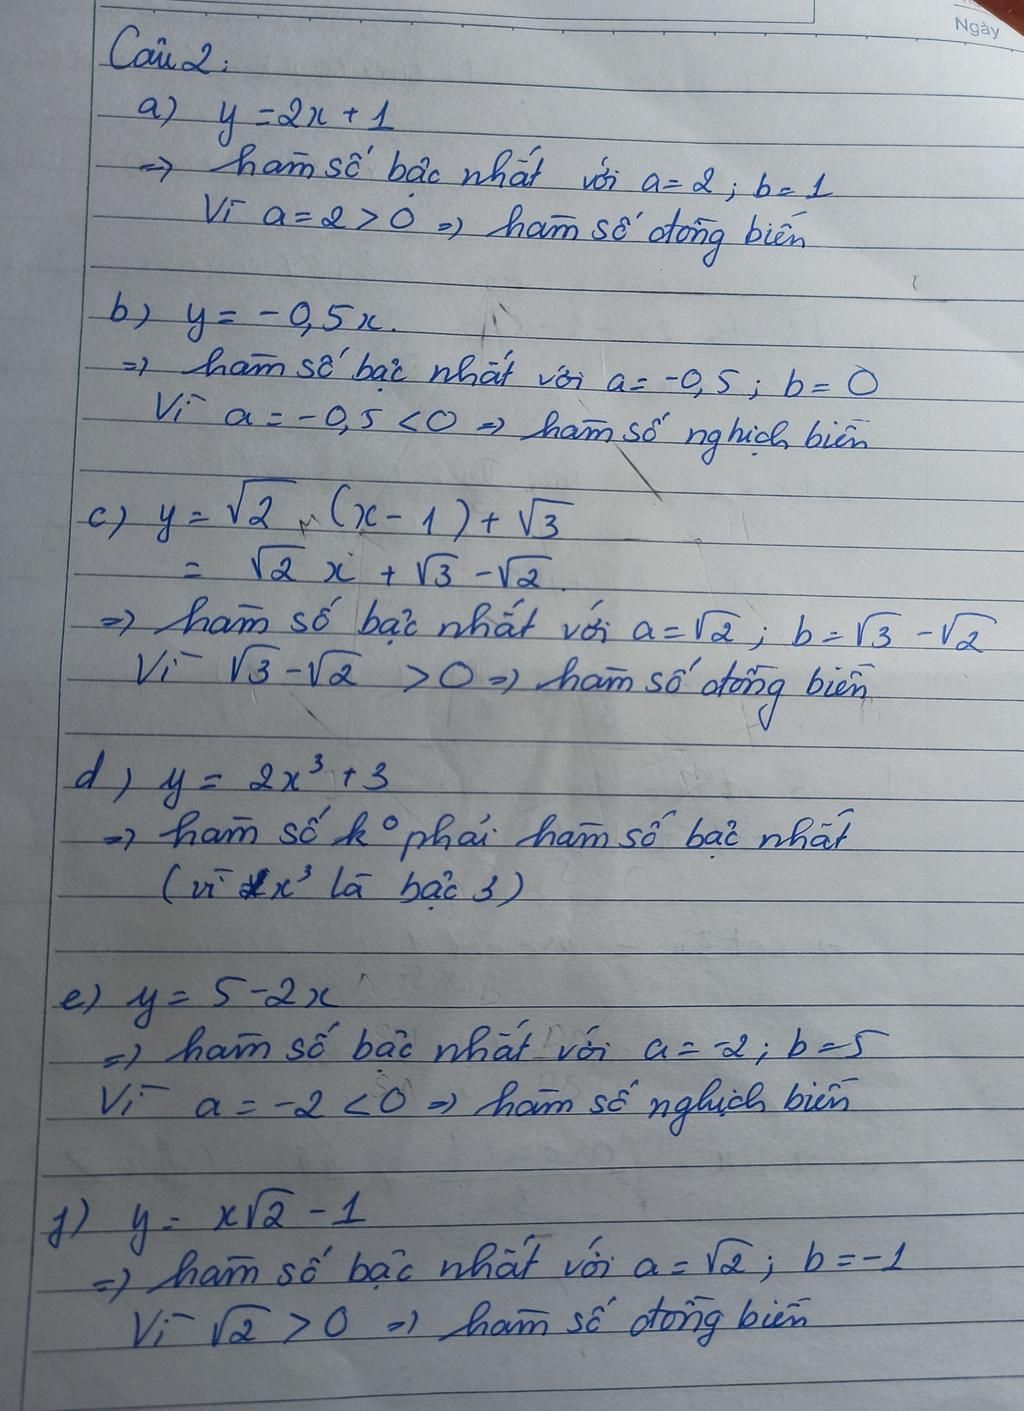 Ngày
Câu 2:
a) y = 2x + 1
=> hàm số bậc nhất với a = 2 ; b = 1
Vì a = 2 > 0 => hàm số đồng biến
b) y = -0,5x.
=> hàm số bậc nhất với a = -0,5 ; b = 0
Vì a = -0,5 < 0 => hàm số nghịch biến
c) y = √2 (x - 1) + √3
= √2 x + √3 - √2.
=> hàm số bậc nhất với a = √2 ; b = √3 - √2
Vì √3 - √2 > 0 => hàm số đồng biến
d) y = 2x³ + 3
=> hàm số k° phải hàm số bậc nhất
(vì x³ là bậc 3)
e) y = 5 - 2x
=> hàm số bậc nhất với a = -2 ; b = 5
Vì a = -2 < 0 => hàm số nghịch biến
f) y = x√2 - 1
=> hàm số bậc nhất với a = √2 ; b = -1
Vì √2 > 0 => hàm số đồng biến